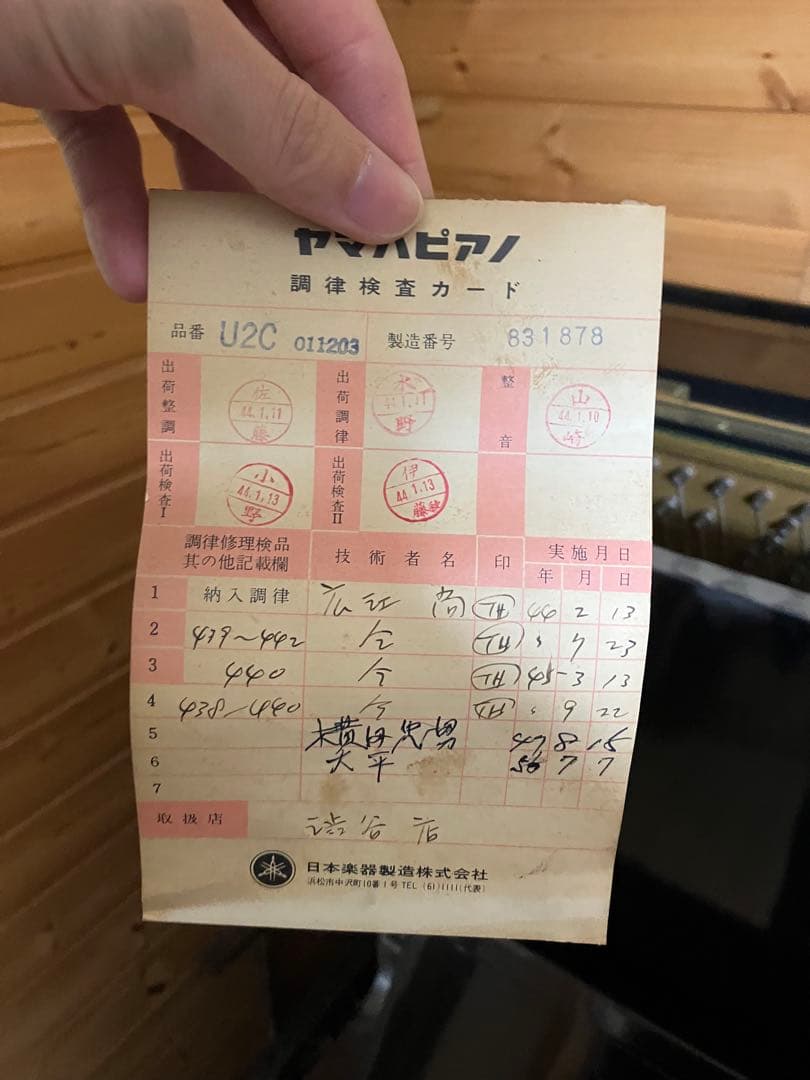 ヤマハピアノ
調律検査カード
品番 U2C 011203 製造番号 831878
出荷整調 佐藤 44.1.11 出荷調律 水野 44.1.11 整音 山崎 44.1.10
出荷検査I 小野 44.1.13 出荷検査II 伊藤 44.1.13
調律修理検品其の他記載欄 技術者名 印 実施月日
年 月 日
1 納入調律 広江 44 2 13
2 439~442 仝 〃 7 23
3 440 仝 45 3 13
4 438~440 仝 〃 9 22
5 横田忠男 47 8 15
6 大平 56 7 7
7
取扱店 渋谷店
日本楽器製造株式会社
浜松市中沢町10番1号 TEL (61)1111(代表)